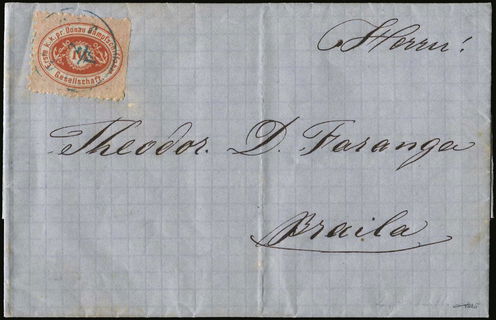 Erste k. k. pr. Donau Dampfschiffahrt
Gesellschaft.
Herrn!
Theodor. D. Faranga
Braila